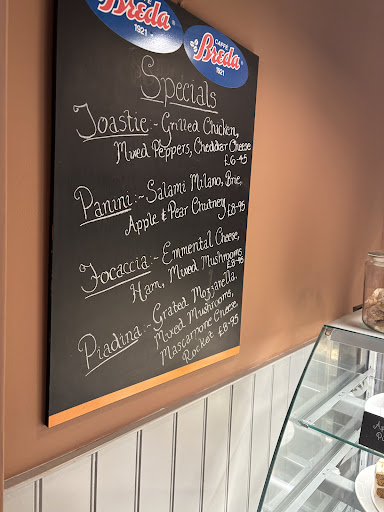 CAFFÈ
Breda
1921
CAFFÈ
Breda
1921
Specials
Toastie:- Grilled Chicken,
Mixed Peppers, Cheddar Cheese
£6-45
Panini:- Salami Milano, Brie,
Apple & Pear Chutney £8-95
Focaccia:- Emmental Cheese,
Ham, Mixed Mushrooms
£8-95
Piadina:- Grated Mozzarella,
Mixed Mushrooms,
Mascarpone Cheese
Rocket £8-95